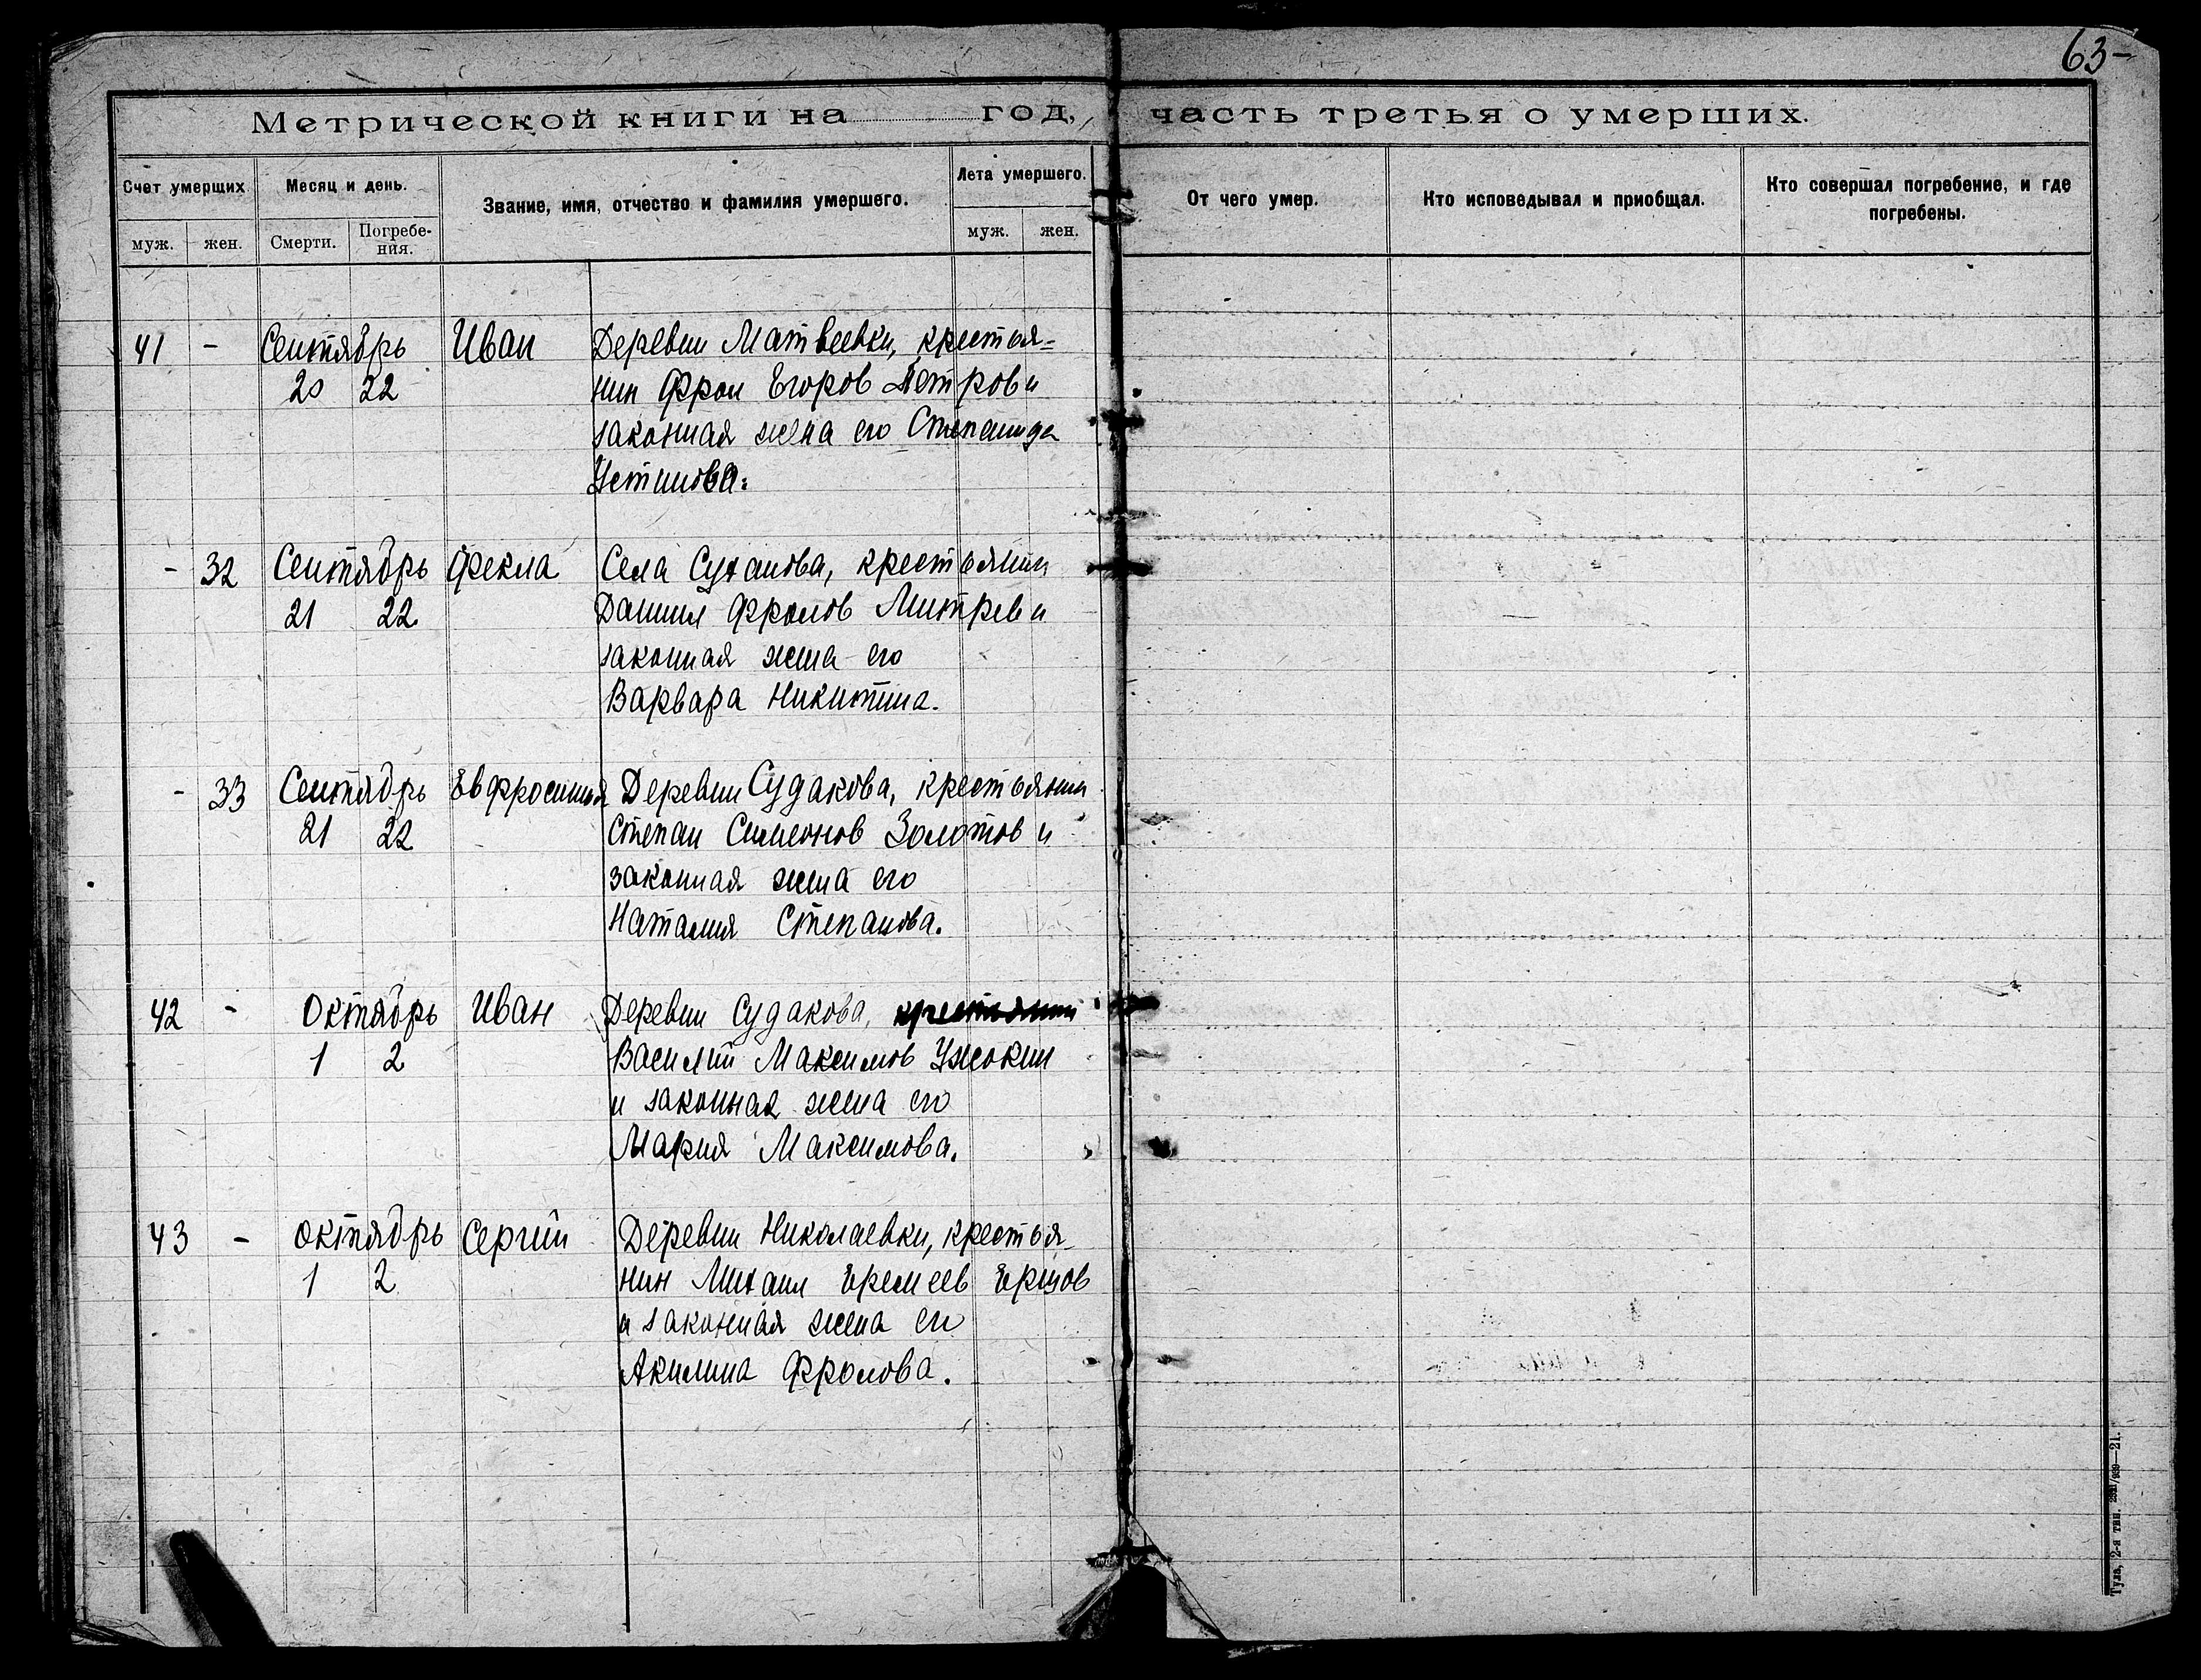 63-
Метрической книги на год, часть третья о умерших.
Счет умерших
Месяц и день.
Звание, имя, отчество и фамилия умершего.
Лета умершего.
От чего умер.
Кто исповедывал и приобщал.
Кто совершал погребение, и где
погребены.
муж. жен. Смерти. Погребе-
ния.
муж. жен.
41 - Сентябрь Иван Деревни Матвеевки, крестья=
20 22 нин Фрол Егоров Петров и
законная жена его Степанида
Устинова.
- 32 Сентябрь Фекла Села Суханова, крестьянин
21 22 Даниил Фролов Митрев и
законная жена его
Варвара Никитина.
- 33 Сентябрь Евфросиния Деревни Судакова, крестьянин
21 22 Степан Симеонов Золотов и
законная жена его
Наталия Степанова.
42 - Октябрь Иван Деревни Судакова, крестьянин
1 2 Василий Максимов Ужокин
и законная жена его
Мария Максимова.
43 - Октябрь Сергий Деревни Николаевки, крестья-
1 2 нин Михаил Еремеев Ершов
и законная жена его
Акилина Фролова.
Тула, 2-я тип.